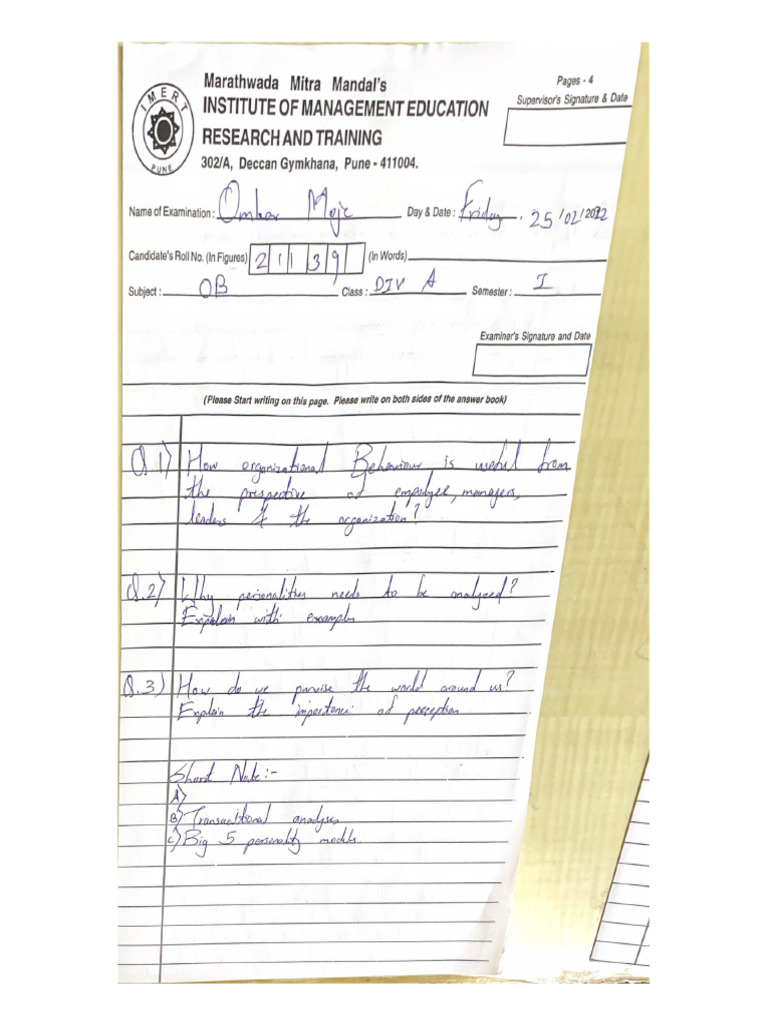 Marathwada Mitra Mandal's
INSTITUTE OF MANAGEMENT EDUCATION
RESEARCH AND TRAINING
302/A, Deccan Gymkhana, Pune - 411004.
IMERT
PUNE
Pages - 4
Supervisor's Signature & Date
Name of Examination : Omkar Moje Day & Date : Friday, 25/02/2022
Candidate's Roll No. (In Figures) 21139 (In Words)
Subject : OB Class : DIV A Semester : I
Examiner's Signature and Date
(Please Start writing on this page. Please write on both sides of the answer book)
Q.1) How organizational Behaviour is useful from
the prespective of empolyee, managers,
leaders & the organization?
Q.2) Why personalities needs to be analyzed?
Explain with examples
Q.3) How do we parvise the world around us?
Explain the importance of perception
Short Note:-
A)
B) Transactional analyses
C) Big 5 personality models.